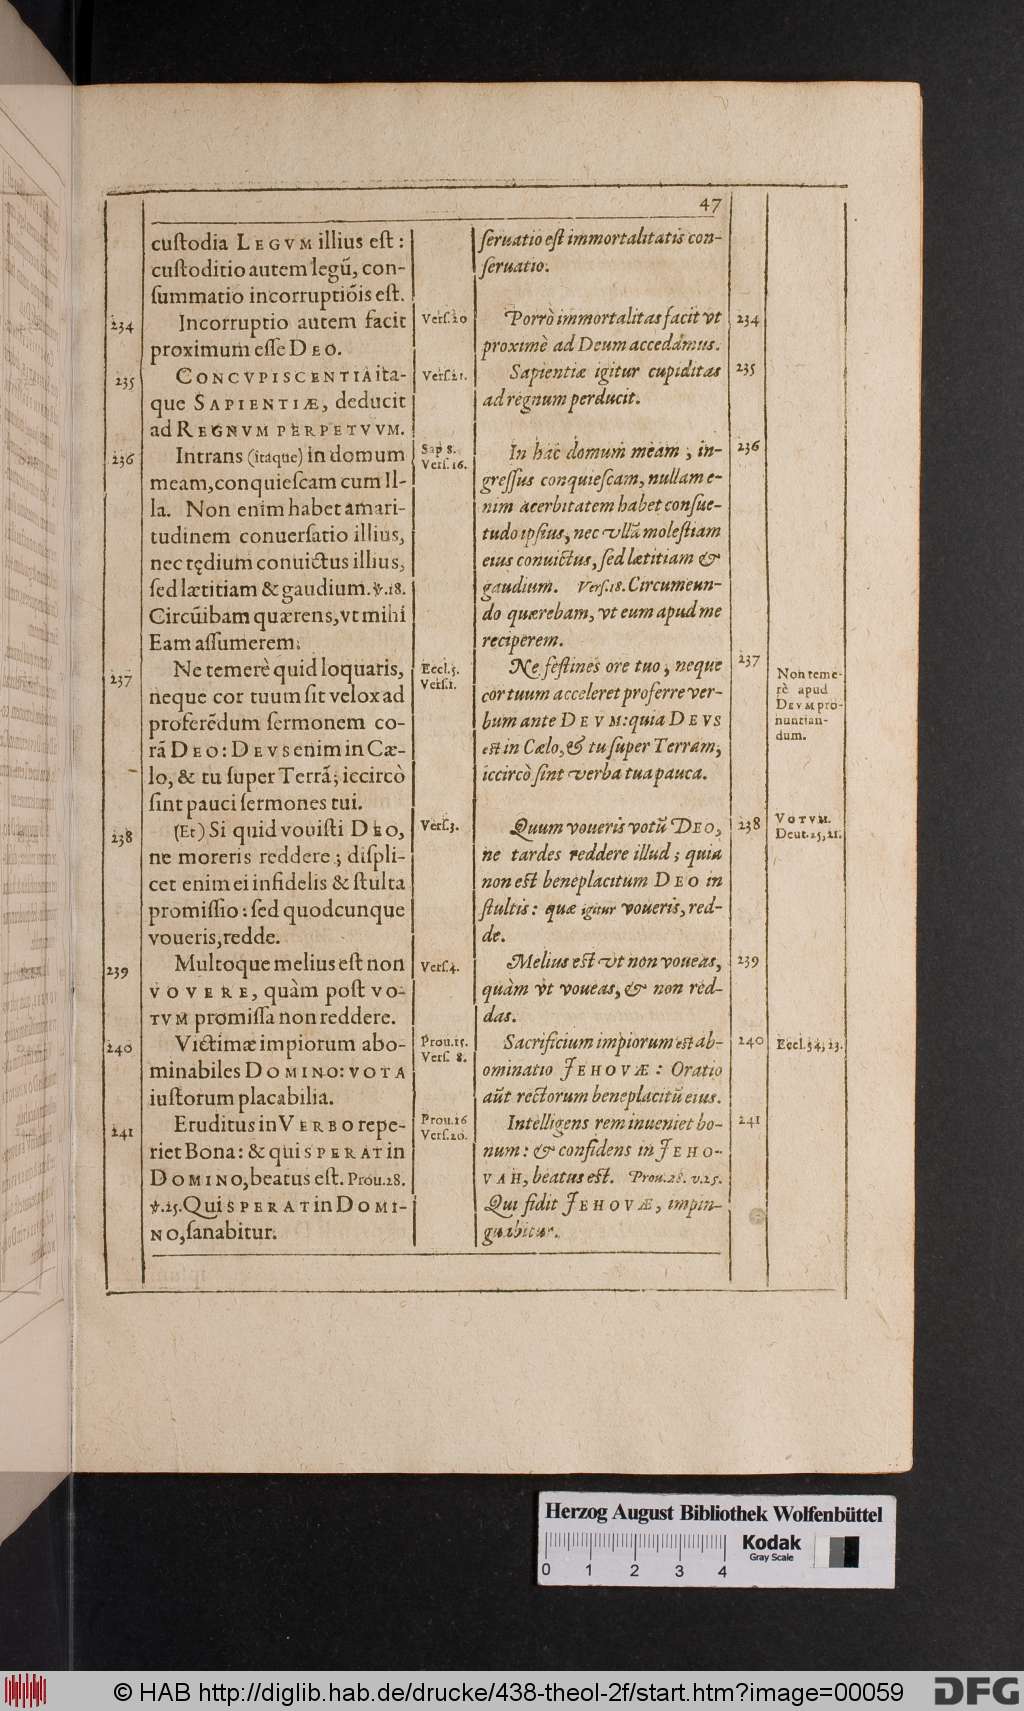 47
custodia LEGVM illius est:
custoditio autem legũ, con-
summatio incorruptiõis est.
234
Incorruptio autem facit
proximum esse DEO.
235
CONCVPISCENTIA ita-
que SAPIENTIÆ, deducit
ad REGNVM PERPETVVM.
236
Intrans (itaque) in domum
meam, conquiescam cum Il-
la. Non enim habet amari-
tudinem conuersatio illius,
nec tędium conuictus illius,
sed lætitiam & gaudium. ℣.18.
Circũibam quærens, vt mihi
Eam assumerem.
237
Ne temerè quid loquaris,
neque cor tuum sit velox ad
proferẽdum sermonem co-
rã DEO: DEVS enim in Cæ-
lo, & tu super Terrã; iccircò
sint pauci sermones tui.
238
(Et) Si quid vouisti DEO,
ne moreris reddere; displi-
cet enim ei infidelis & stulta
promissio: sed quodcunque
voueris, redde.
239
Multoque melius est non
VOVERE, quàm post VO-
TVM promissa non reddere.
240
Victimæ impiorum abo-
minabiles DOMINO: VOTA
iustorum placabilia.
241
Eruditus in VERBO repe-
riet Bona: & qui SPERAT in
DOMINO, beatus est. Prou.28.
℣.25. Qui SPERAT in DOMI-
NO, sanabitur.
Vers.20
Vers.21.
Sap 8.
Vers.16.
Eccl.5.
Vers.1.
Vers.3.
Vers.4.
Prou.15.
Vers 8.
Prou.16
Vers.20.
seruatio est immortalitatis con-
seruatio.
Porrò immortalitas facit vt
proximè ad Deum accedamus.
Sapientiæ igitur cupiditas
ad regnum perducit.
In hãc domum meam, in-
gressus conquiescam, nullam e-
nim acerbitatem habet consue-
tudo ipsius, nec vllã molestiam
eius conuictus, sed lætitiam &
gaudium. Vers.18. Circumeun-
do quærebam, vt eum apud me
reciperem.
Ne festines ore tuo, neque
cor tuum acceleret proferre ver-
bum ante DEVM: quia DEVS
est in Cælo, & tu super Terram;
iccircò sint verba tua pauca.
Quum voueris votũ DEO,
ne tardes reddere illud; quia
non est beneplacitum DEO in
stultis: quæ igitur voueris, red-
de.
Melius est vt non voueas,
quàm vt voueas, & non red-
das.
Sacrificium impiorum est ab-
ominatio JEHOVÆ: Oratio
aũt rectorum beneplacitũ eius.
Intelligens rem inueniet bo-
num: & confidens in JEHO-
VAH, beatus est. Prou.28. v.25.
Qui fidit JEHOVÆ, impin-
guabitur.
234
235
236
237
238
239
240
241
Non teme-
rè apud
DEVM pro-
nuntian-
dum.
VOTVM.
Deut.23,21.
Eccl.34,23.
Herzog August Bibliothek Wolfenbüttel
Kodak
Gray Scale
0 1 2 3 4
© HAB http://diglib.hab.de/drucke/438-theol-2f/start.htm?image=00059
DFG